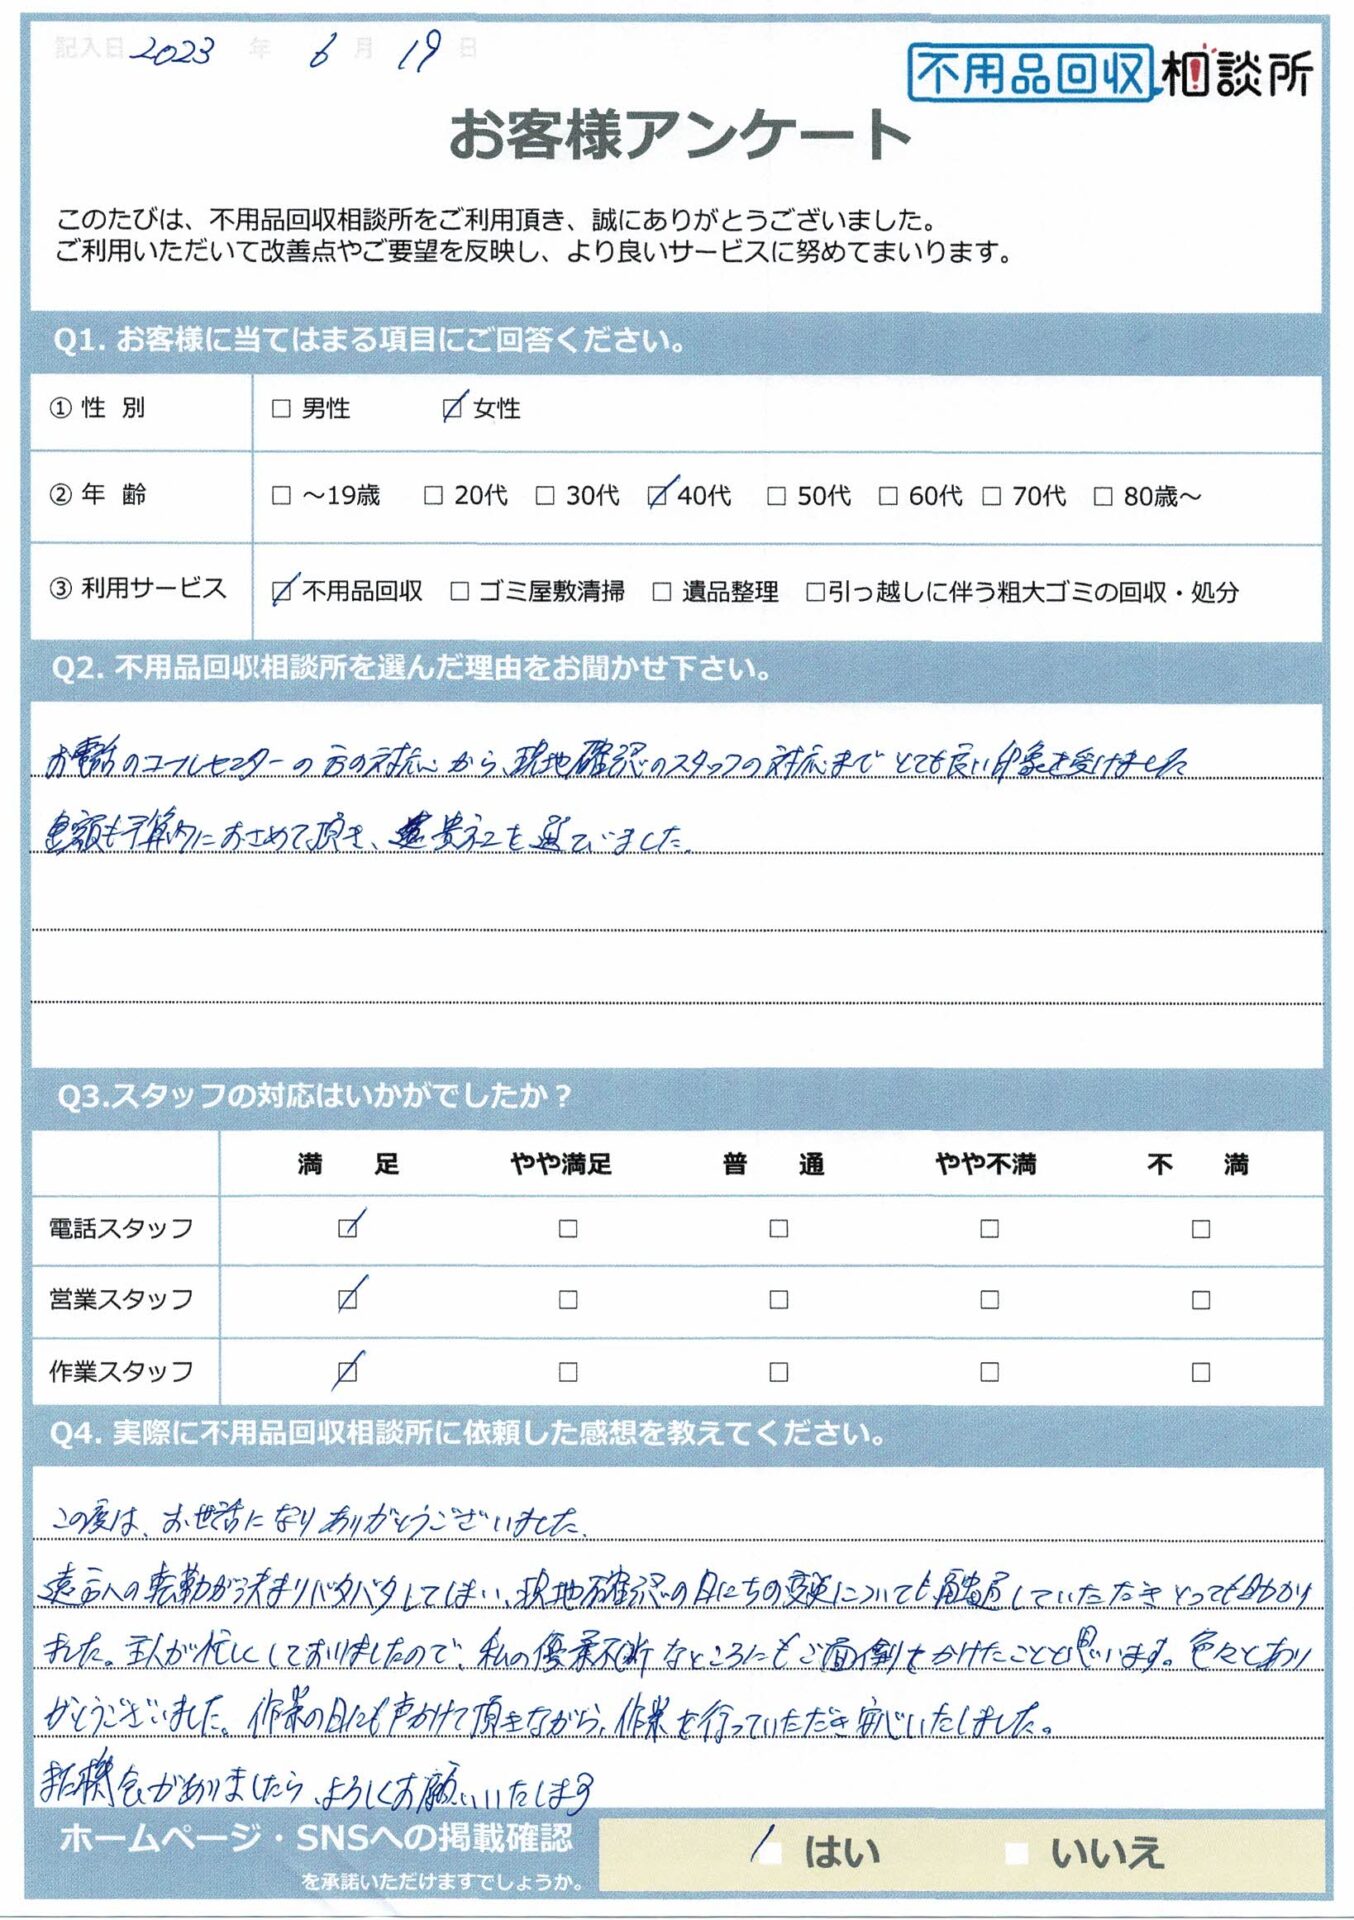 記入日 2023 年 6 月 19 日
不用品回収相談所
お客様アンケート
このたびは、不用品回収相談所をご利用頂き、誠にありがとうございました。
ご利用いただいて改善点やご要望を反映し、より良いサービスに努めてまいります。
Q1. お客様に当てはまる項目にご回答ください。
① 性 別 □ 男性 ☑ 女性
② 年 齢 □ ～19歳 □ 20代 □ 30代 ☑ 40代 □ 50代 □ 60代 □ 70代 □ 80歳～
③ 利用サービス ☑ 不用品回収 □ ゴミ屋敷清掃 □ 遺品整理 □引っ越しに伴う粗大ゴミの回収・処分
Q2. 不用品回収相談所を選んだ理由をお聞かせ下さい。
お電話のコールセンターの方の対応から、現地確認のスタッフの対応までとても良い印象を受けました
金額も予算内におさめて頂き、貴社を選びました。
Q3.スタッフの対応はいかがでしたか？
満 足 やや満足 普 通 やや不満 不 満
電話スタッフ ☑ □ □ □ □
営業スタッフ ☑ □ □ □ □
作業スタッフ ☑ □ □ □ □
Q4. 実際に不用品回収相談所に依頼した感想を教えてください。
この度は、お世話になりありがとうございました。
遠方への転勤が決まりバタバタしてしまい、現地確認の日にちの変更についても していただきとっても助かり
ました。主人が忙しくしておりましたので、私の優柔不断なところにもご面倒をかけたことと思います。色々とあり
がとうございました。作業の日にも声かけて頂きながら、作業を行っていただき安心いたしました。
また機会がありましたら、よろしくお願いいたします
ホームページ・SNSへの掲載確認 ☑ はい □ いいえ
を承諾いただけますでしょうか。